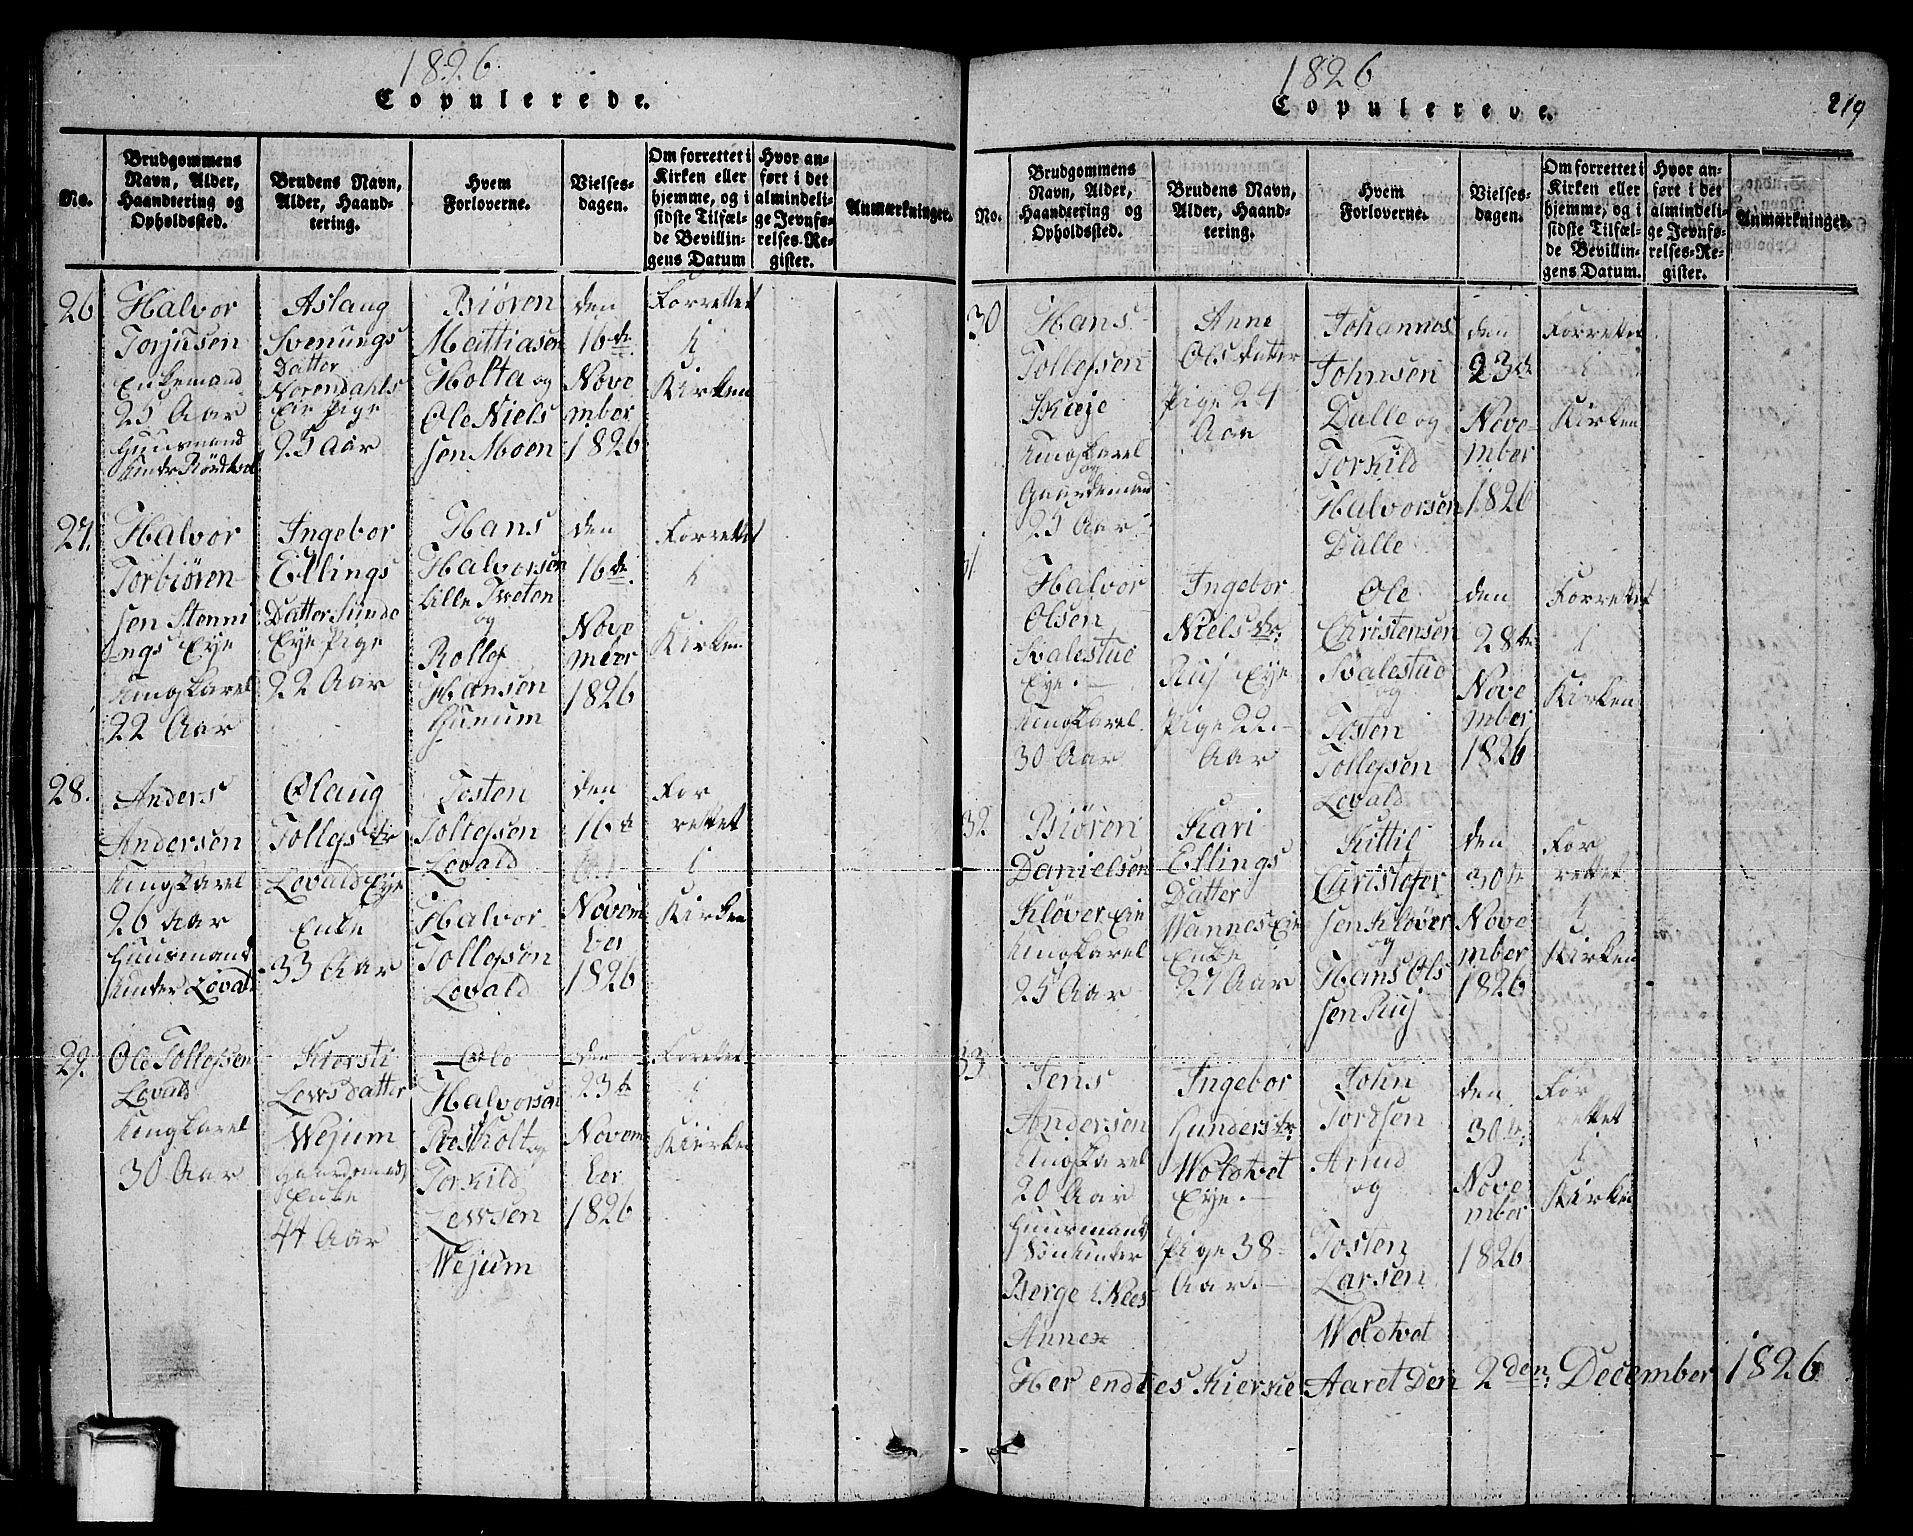 1826
Copulerede.
No.
Brudgommens
Navn, Alder,
Haandtering og
Opholdssted.
Brudens Navn,
Alder, Haand-
tering.
Hvem
Forloverne.
Vielses-
dagen.
Om forrettet i
Kirken eller
hjemme, og i
sidste Tilfæl-
de Bevillin-
gens Datum
Hvor an-
ført i det
almindeli-
ge Jevnfø-
relses-Re-
gister.
Anmærkninger.
26
Halvor
Torjusen
Enkemand
25 Aar
Huusmand
under
Aslaug
Svenungs
Datter
Norendahls
Eie Pige
25 Aar
Biören
Mattiasen
Holta og
Ole Niels
sen Moen
den
16de
Nove
mber
1826
Forrettet
i
Kirken
27.
Halvor
Torbiören
sen Stenni
ngs Eye
Ungkarel
22 Aar
Ingebor
Ellings
Datter Sunde
Eye Pige
22 Aar
Hans
Halvorsen
Lille Tweten
og
Rollef
Hansen
Hunum
den
16de
Nove
mber
1826
Forrettet
i
Kirken
28.
Anders
Andersen
Ungkarel
26 Aar
Huusmand
under Lovald
Olaug
Tollefsdtr
Lovald Eye
Enke
33 Aar
Tosten
Tollefsen
Lovald
Halvor
Tollefsen
Lovald
den
16de
Novem
ber
1826
For
rettet
i
Kirken
29.
Ole Tollefsen
Lovald
Ungkarel
30 Aar
Kiersti
Lewsdatter
Wejum
gaardmands
Enke
44 Aar
Ole
Halvorsen
Rosholt og
Torkild
Lewsen
Wejum
den
23de
Novem
ber
1826
Forrettet
i
Kierken
1826
Copulerede.
219
No.
Brudgommens
Navn, Alder,
Haandtering og
Opholdssted.
Brudens Navn,
Alder, Haand-
tering.
Hvem
Forloverne.
Vielses-
dagen.
Om forrettet i
Kirken eller
hjemme, og i
sidste Tilfæl-
de Bevillin-
gens Datum.
Hvor an-
ført i det
almindeli-
ge Jevnfø-
relses-Re-
gister.
Anmærkninger.
30
Hans
Tollefsen
Skeje
Ungkarel
og
Gaardemand
25 Aar
Anne
Olsdatter
Pige 24
Aar
Johannes
Johnsen
Dalle og
Torkild
Halvorsen
Dalle
den
23de
Nove
mber
1826
Forrettet
i
Kirken
31
Halvor
Olsen
Svalestue
Eye.
Ungkarel
30 Aar
Ingebor
Nielsdtr.
Ruj Eye
Pige 22
Aar
Ole
Christensen
Svalestue
og
Tosten
Tollefsen
Lovald
den
28de
Nove
mber
1826
Forrettet
i
Kirken
32
Biören
Danielsen
Klöver Eie
Ungkarel
25 Aar
Kari
Ellings
Datter
Wannes Eie
Enke
27 Aar
Kittil
Christofer
sen Klöver
og
Hans Ols
sen Ruj
den
30te
Nove
mber
1826
For
rettet
i
Kirken
33
Jens
Andersen
Ungkarel
20 Aar
Huusmand
Sön under
Berge i Nees
Annex
Ingebor
Gundersdtr.
Woldtvet
Eye.
Pige 38
Aar.
John
Tordsen
Arrud
og
Tosten
Larsen
Woldtvet
den
30te
Nove
mber
1826
For
rettet
i
Kirken
Her endtes Kierke Aaret Den 2den December 1826